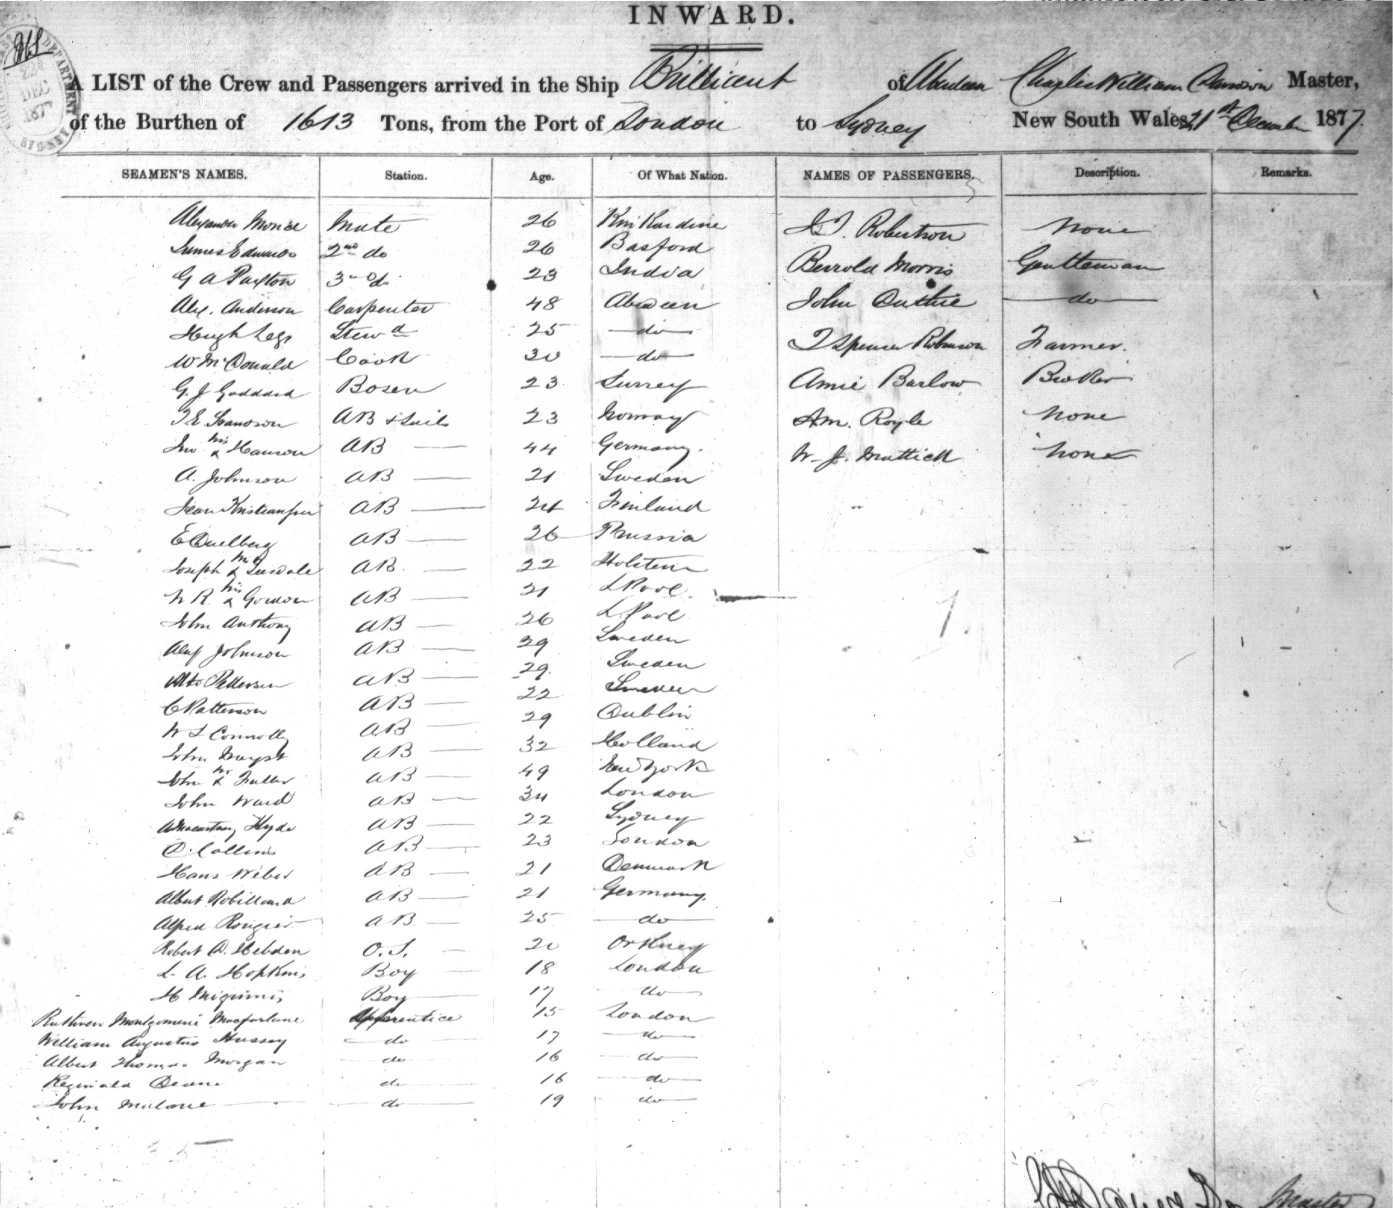 INWARD.
A LIST of the Crew and Passengers arrived in the Ship Brilliant of Aberdeen Charles William Davidson Master,
of the Burthen of 1613 Tons, from the Port of London to Sydney New South Wales 21st December 1877
SEAMEN'S NAMES. Station. Age. Of What Nation. NAMES OF PASSENGERS. Description. Remarks.
Alexander Mate 26 J. T. Robertson none
James Edwards 2nd do 26 Basford
G A Paxton 3rd do. 23 India Morris Gentleman
Alex. Anderson Carpenter 48 Aberdeen John Duthie do
Hugh Legg Stewd 25 do
W McDonald Cook 30 do T Spence Robinson Farmer.
G. J. Goddard Bosen 23 Surrey Amie Barlow
AB & Sails 23 Norway Am. Royle none
Jno his x Hanson AB 44 Germany. W. J. Mattick none
A. Johnson AB 21 Sweden
AB 24 Finland
E AB 26
Joseph AB 22 Holstein
W R his x Gordon AB 21 LPool.
John Anthony AB 26 LPool
Alex Johnson AB 29 Sweden
Pettersen AB 29 Sweden
C Patterson AB 22 Sweden
W L Connolly AB 29 Dublin
John AB 32 Holland
John x Fuller AB 49 New York
John Ward AB 34 London
Hyde AB 22 Sydney
D. Collins AB 23 London
Hans Weber AB 21 Denmark
Albert AB 21 Germany,
Alfred AB 25 do
Robert D. Hebden O.S. 20 Orkney
L. A. Hopkins Boy 18 London
H Boy 17 do
Ruthven Montgomerie Macfarlane Apprentice 15 London
William Augustus Hussey do 17 do
Albert Thomas Morgan do 16 do
Reginald Deane do 16 do
John Malone do 19 do
35
Master